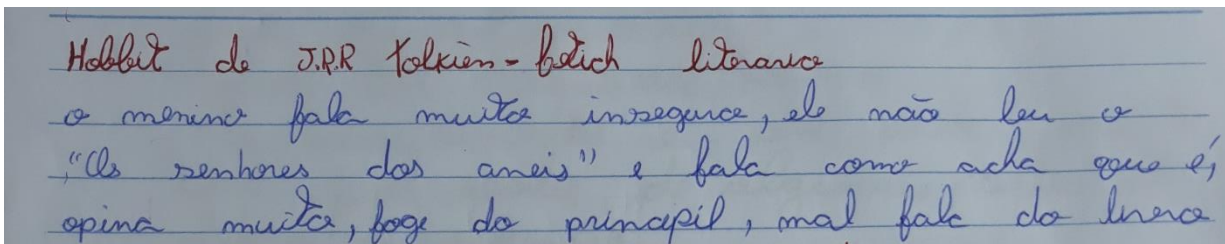 Hobbit de J.R.R Tolkien - fetich literario
o menino fala muito inseguro, ele não leu o
"Os senhores dos aneis" e fala como acha que é,
opina muito, foge do principil, mal fala do livro